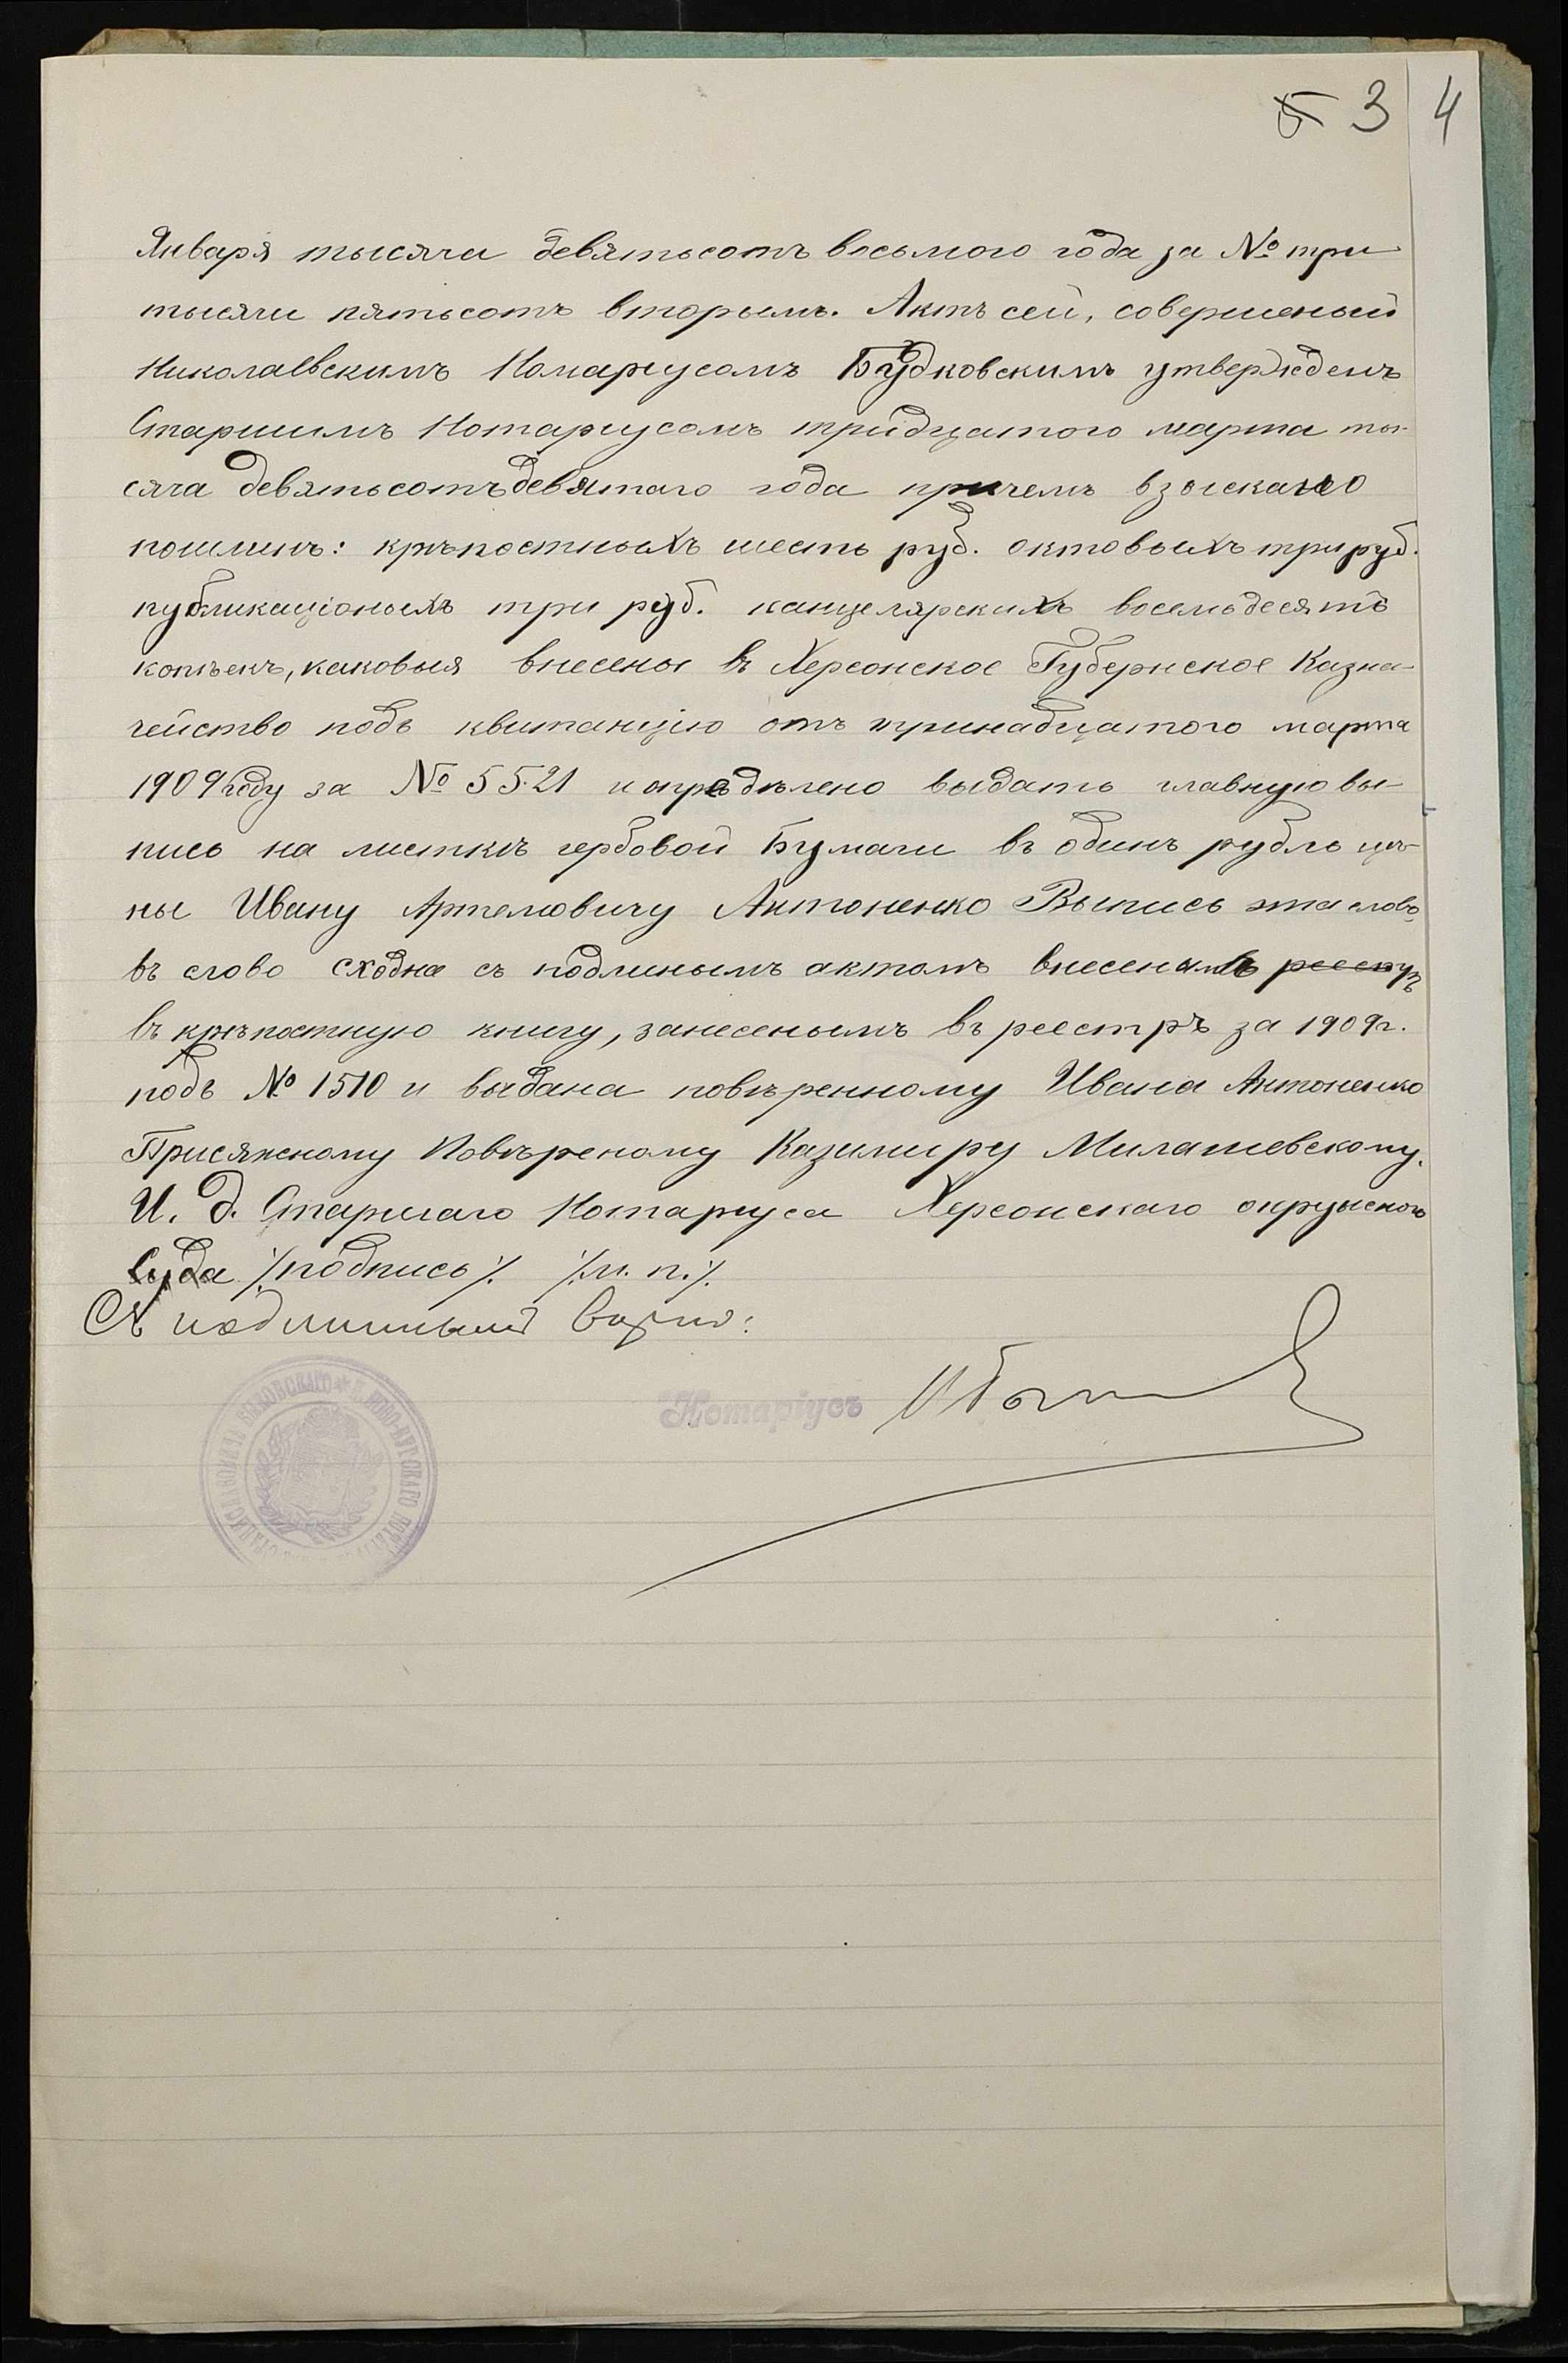 5 3 4
Января тысяча девятьсотъ восьмого года за № три
тысячи пятьсотъ вторымъ. Актъ сей, совершеный
Николаевскимъ Нотариусомъ Будковскимъ утвержденъ
Старшимъ Нотариусомъ тридцатого марта ты-
сяча девятьсотъ девятаго года причемъ взыскано
пошлинъ: крѣпостныхъ шесть руб. актовыхъ три руб.
публикаціоныхъ три руб. канцелярскихъ восемьдесятъ
копѣекъ, каковыя внесены въ Херсонское Губернское Казна-
чейство подъ квитанцію отъ тринадцатого марта
1909 году за № 5521 и опредѣлено выдать главную вы-
пись на листкѣ гербовой Бумаги въ одинъ рубль цѣ-
ны Ивану Артемовичу Антоненко Выпись эта слово
въ слово сходна съ подлинымъ актомъ внесенымъ
въ крѣпостную книгу, занесенымъ въ реестръ за 1909 г.
подъ № 1510 и выдана повѣренному Ивана Антоненко
Присяжному Повѣреному Казимиру Милашевскому.
И. д. Старшаго Нотариуса Херсонскаго окружного
Суда /подпись/. /м. п./.
Съ подлиннымъ вѣрно:
Нотаріусъ